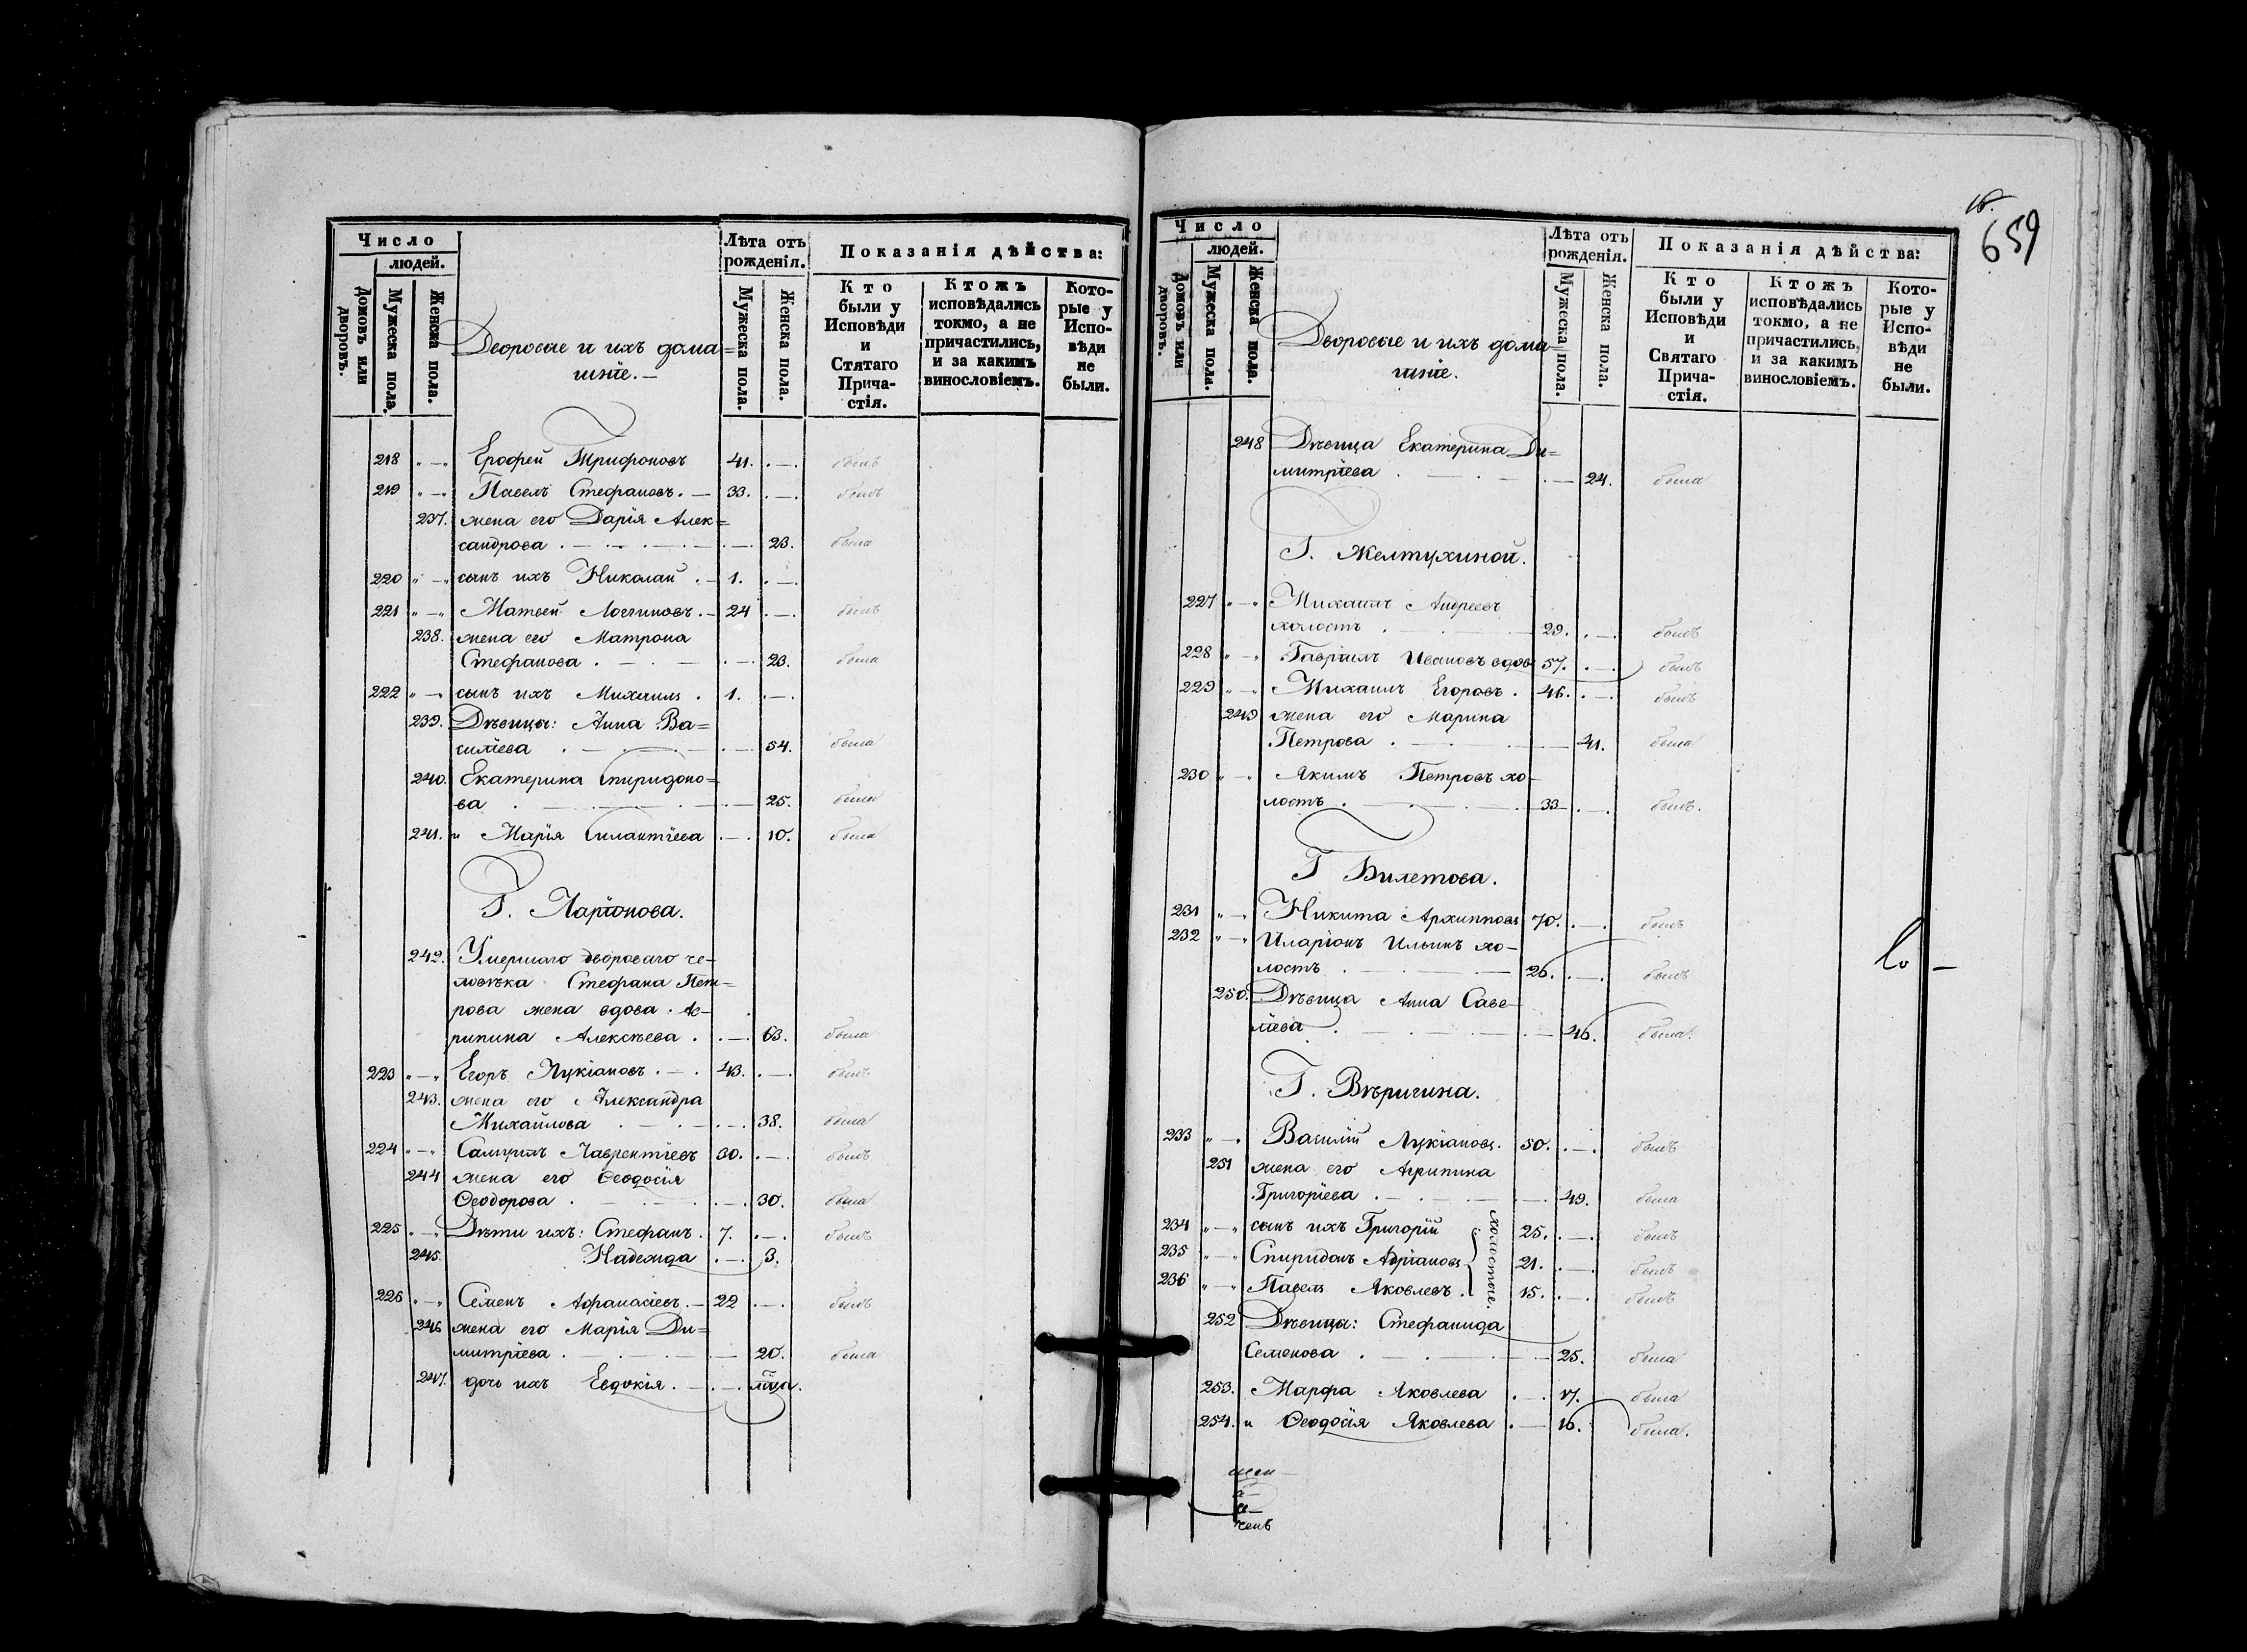 Число
людей.
Домовъ или дворовъ.
Мужеска пола.
Женска пола.
Дворовые и ихъ дома=
шніе.—
Лѣта отъ рожденія.
Мужеска пола.
Женска пола.
Показанія дѣйства:
Кто были у Исповѣди и Стятаго Прича-стія.
Ктожъ исповѣдались токмо, а не причастились, и за какимъ винословіемъ.
Кото-рые у Испо-вѣди не были.
218 „—„ Ерофей Трифоновъ 41. .—. былъ
219 „—„ Павелъ Стефановъ.— 33. .—. былъ
237. жена его Дарія Алек=
сандрова .—. 23. была
220 „—„ сынъ ихъ Николай .— 1. .—.
221 „—„ Матвей Логгиновъ.— 24 .—. былъ
238. жена его Матрона
Стефанова .—. 23. была
222 „—„ сынъ ихъ Михаилъ . 1. .—.
239. Дѣвицы: Анна Ва=
силіева .—. 54. была
240. Екатерина Спиридоно=
ва .—. 25. была
241. и Марія Силантіева .—. 10. была
Г. Ларіонова.
242. Умершаго двороваго че-
ловѣка Стефана Пет=
рова жена вдова Аг-
рипина Алексѣева . .—. 63. была
223 „—„ Егоръ Лукіановъ.—. 43. .—. былъ
243. жена его Александра
Михайлова .—. 38. была
224 „—„ Самуилъ Лаврентіевъ 30. .—. былъ
244 жена его Ѳеодосія
Ѳеодорова .—. 30. была
225 „—„ Дѣти ихъ: Стефанъ. 7. .—. былъ
245. Надежда .—. 3.
226 „—„ Семенъ Афанасіевъ.— 22 .—. былъ
246 жена его Марія Ди=
митріева .—. 20. была
247. дочь ихъ Евдокія.—.
16.
659
Число
людей.
Домовъ или дворовъ.
Мужеска пола.
Женска пола.
Дворовые и ихъ дома=
шніе.
Лѣта отъ рожденія.
Мужеска пола.
Женска пола.
Показанія дѣйства:
Кто были у Исповѣди и Святаго Прича-стія.
Ктожъ исповѣдались токмо, а не причастились, и за какимъ винословіемъ.
Кото-рые у Испо-вѣди не были.
248 Дѣвица Екатерина Ди=
митріева .—. 24. была
Г. Желтухиной.
227 „—„ Михаилъ Андреевъ
холостъ .—. 29. .—. былъ
228 „—„ Гавріилъ Ивановъ вдов 57. .—. былъ
229 „—„ Михаилъ Егоровъ . 46. .—. былъ
249 жена его Марина
Петрова .—. 41. была
230 „—„ Якимъ Петровъ хо-
лостъ .—. 33— .—. былъ.
Г Билетова.
231 „—„ Никита Архиповъ 70. .—. былъ
232 „—„ Иларіонъ Ильинъ хо-
лостъ .—. 26. .—. былъ
250. Дѣвица Анна Саве-
ліева .—. 46. была.
Г. Вѣригина.
233 „—„ Василій Лукіановъ. 50. .—. былъ
251 жена его Агрипина
Григоріева .—. 49. была
234 „—„ сынъ ихъ Григорій 25. .—. былъ
235 „—„ Спиридонъ Адріановъ 21. .—. былъ
236 „—„ Павелъ Яковлевъ . 15. .—. былъ
холостые.
252 Дѣвицы: Стефанида
Семенова .—. 25. была
253. Марфа Яковлева .— 17. была
254. и Ѳеодосія Яковлева .— 16. была.